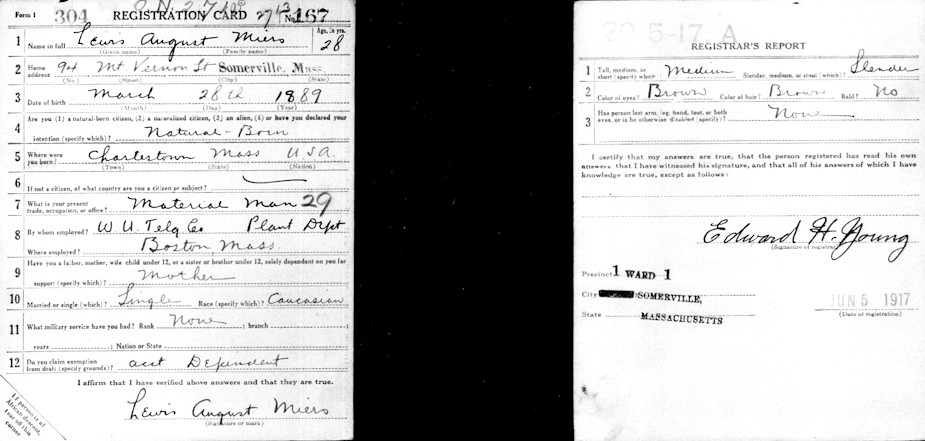 Form 1 304 REGISTRATION CARD No. 167
1 Name in full Lewis August Miers Age, in yrs. 28
(Given name) (Family name)
2 Home address 94 Mt Vernon St Somerville, Mass.
(No.) (Street) (City) (State)
3 Date of birth March 28th 1889
(Month) (Day) (Year)
4 Are you (1) a natural-born citizen, (2) a naturalized citizen, (3) an alien, (4) or have you declared your
intention (specify which)? Natural-Born
5 Where were you born? Charlestown Mass USA.
(Town) (State) (Nation)
6 If not a citizen, of what country are you a citizen or subject?
7 What is your present trade, occupation, or office? Material Man 29
8 By whom employed? W. U. Telg Co Plant Dept
Where employed? Boston, Mass.
9 Have you a father, mother, wife child under 12, or a sister or brother under 12, solely dependent on you for
support (specify which)? Mother
10 Married or single (which)? Single Race (specify which)? Caucasian
11 What military service have you had? Rank None ; branch ;
years ; Nation or State
12 Do you claim exemption from draft (specify grounds)? acct Dependent
I affirm that I have verified above answers and that they are true.
Lewis August Miers
(Signature or mark)
If person is of
African descent,
tear off this
corner
20 5-17 A
REGISTRAR'S REPORT
1 Tall, medium, or short (specify which) Medium Slender, medium, or stout (which)? Slender
2 Color of eyes? Brown Color of hair? Brown Bald? No
3 Has person lost arm, leg, hand, foot, or both
eyes, or is he otherwise disabled (specify)? None
I certify that my answers are true, that the person registered has read his own
answers, that I have witnessed his signature, and that all of his answers of which I have
knowledge are true, except as follows:
Edward H. Young
(Signature of registrar)
Precinct 1 WARD 1
City SOMERVILLE,
State MASSACHUSETTS
JUN 5 1917
(Date of registration)